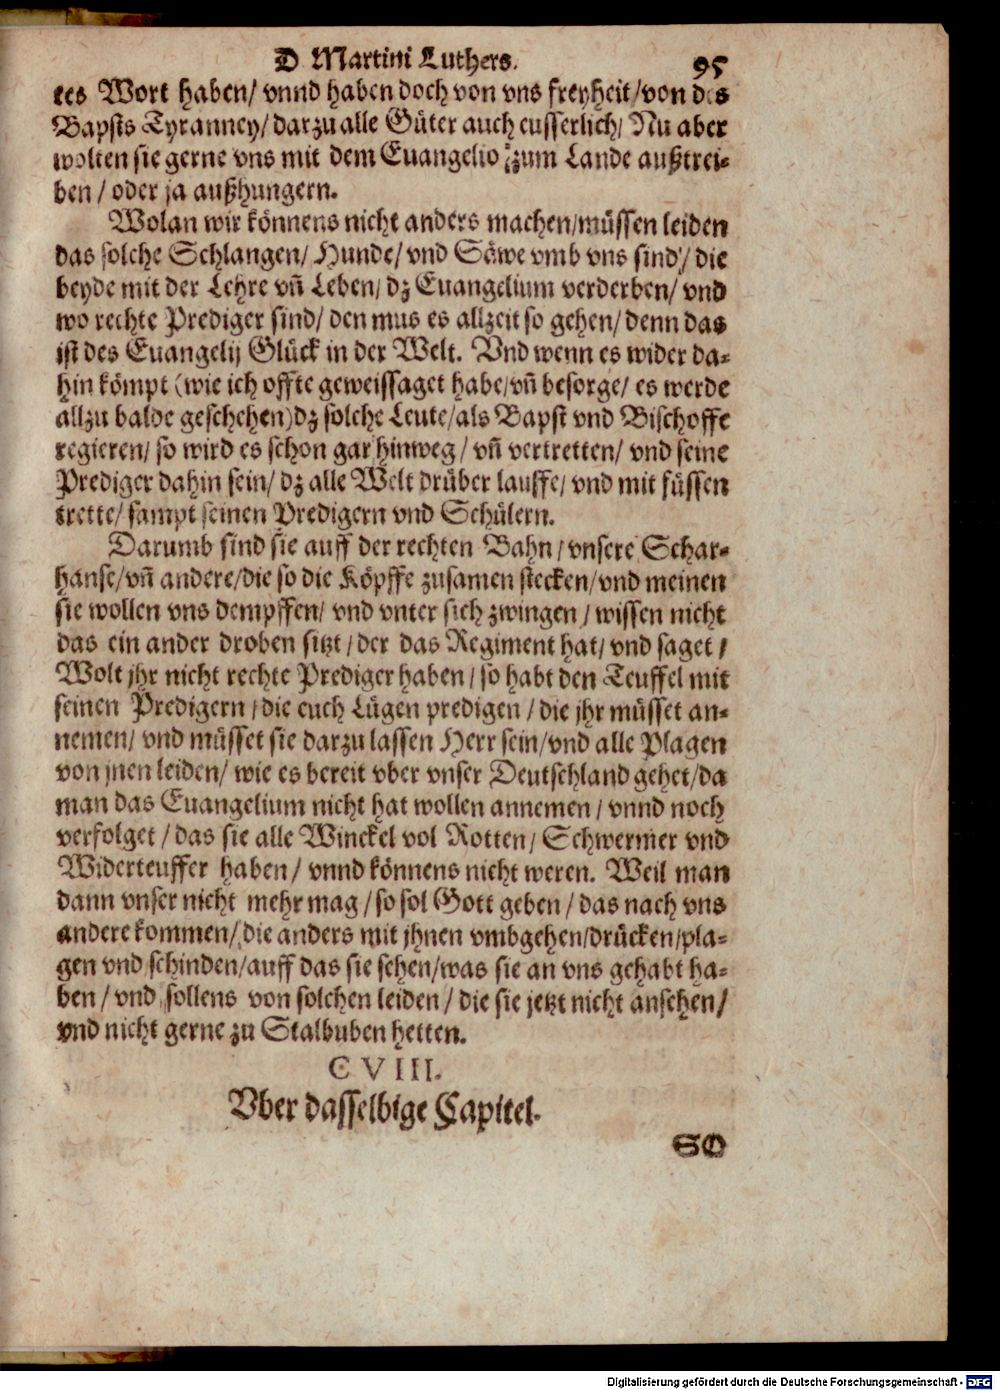 D Martini Luthers. 95
tes Wort haben/ vnnd haben doch von vns freyheit/von des
Bapsts Tyranney/ darzu alle Güter auch eusserlich/ Nu aber
wolten sie gerne vns mit dem Euangelio zum Lande außtrei-
ben/ oder ja außhungern.
Wolan wir könnens nicht anders machen/müssen leiden
das solche Schlangen/ Hunde/ vnd Säwe vmb vns sind/ die
beyde mit der Lehre vñ Leben/ dz Euangelium verderben/ vnd
wo rechte Prediger sind/ den mus es allzeit so gehen/ denn das
ist des Euangelij Glück in der Welt. Vnd wenn es wider da-
hin kömpt (wie ich offte geweissaget habe/vñ besorge/ es werde
allzu balde geschehen)dz solche Leute/als Bapst vnd Bischoffe
regieren/ so wird es schon gar hinweg/ vñ vertretten/ vnd seine
Prediger dahin sein/ dz alle Welt drüber lauffe/ vnd mit füssen
trette/ sampt seinen Predigern vnd Schülern.
Darumb sind sie auff der rechten Bahn/ vnsere Schar-
hanse/vñ andere/die so die Köpffe zusamen stecken/vnd meinen
sie wollen vns dempffen/ vnd vnter sich zwingen/ wissen nicht
das ein ander droben sitzt/ der das Regiment hat/ vnd saget/
Wolt jhr nicht rechte Prediger haben/ so habt den Teuffel mit
seinen Predigern/ die euch Lügen predigen/ die jhr müsset an-
nemen/ vnd müsset sie darzu lassen Herr sein/vnd alle Plagen
von jnen leiden/ wie es bereit vber vnser Deutschland gehet/da
man das Euangelium nicht hat wollen annemen/ vnnd noch
verfolget/ das sie alle Winckel vol Rotten/ Schwermer vnd
Widerteuffer haben/ vnnd könnens nicht weren. Weil man
dann vnser nicht mehr mag/ so sol Gott geben/ das nach vns
andere kommen/ die anders mit jhnen vmbgehen/drücken/pla-
gen vnd schinden/auff das sie sehen/was sie an vns gehabt ha-
ben/ vnd sollens von solchen leiden/ die sie jetzt nicht ansehen/
vnd nicht gerne zu Stalbuben hetten.
CVIII.
Vber dasselbige Capitel.
SO
Digitalisierung gefördert durch die Deutsche Forschungsgemeinschaft - DFG